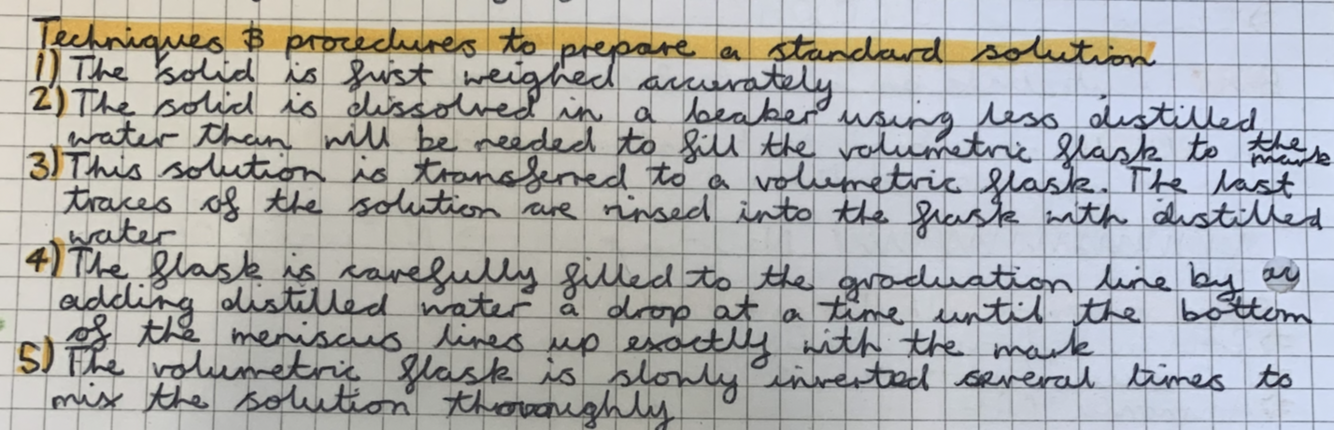 Techniques & procedures to prepare a standard solution
1) The solid is first weighed accurately
2) The solid is dissolved in a beaker using less distilled
water than will be needed to fill the volumetric flask to the mark
3) This solution is transferred to a volumetric flask. The last
traces of the solution are rinsed into the flask with distilled
water
4) The flask is carefully filled to the graduation line by
adding distilled water a drop at a time until the bottom
of the meniscus lines up exactly with the mark
5) The volumetric flask is slowly inverted several times to
mix the solution thoroughly